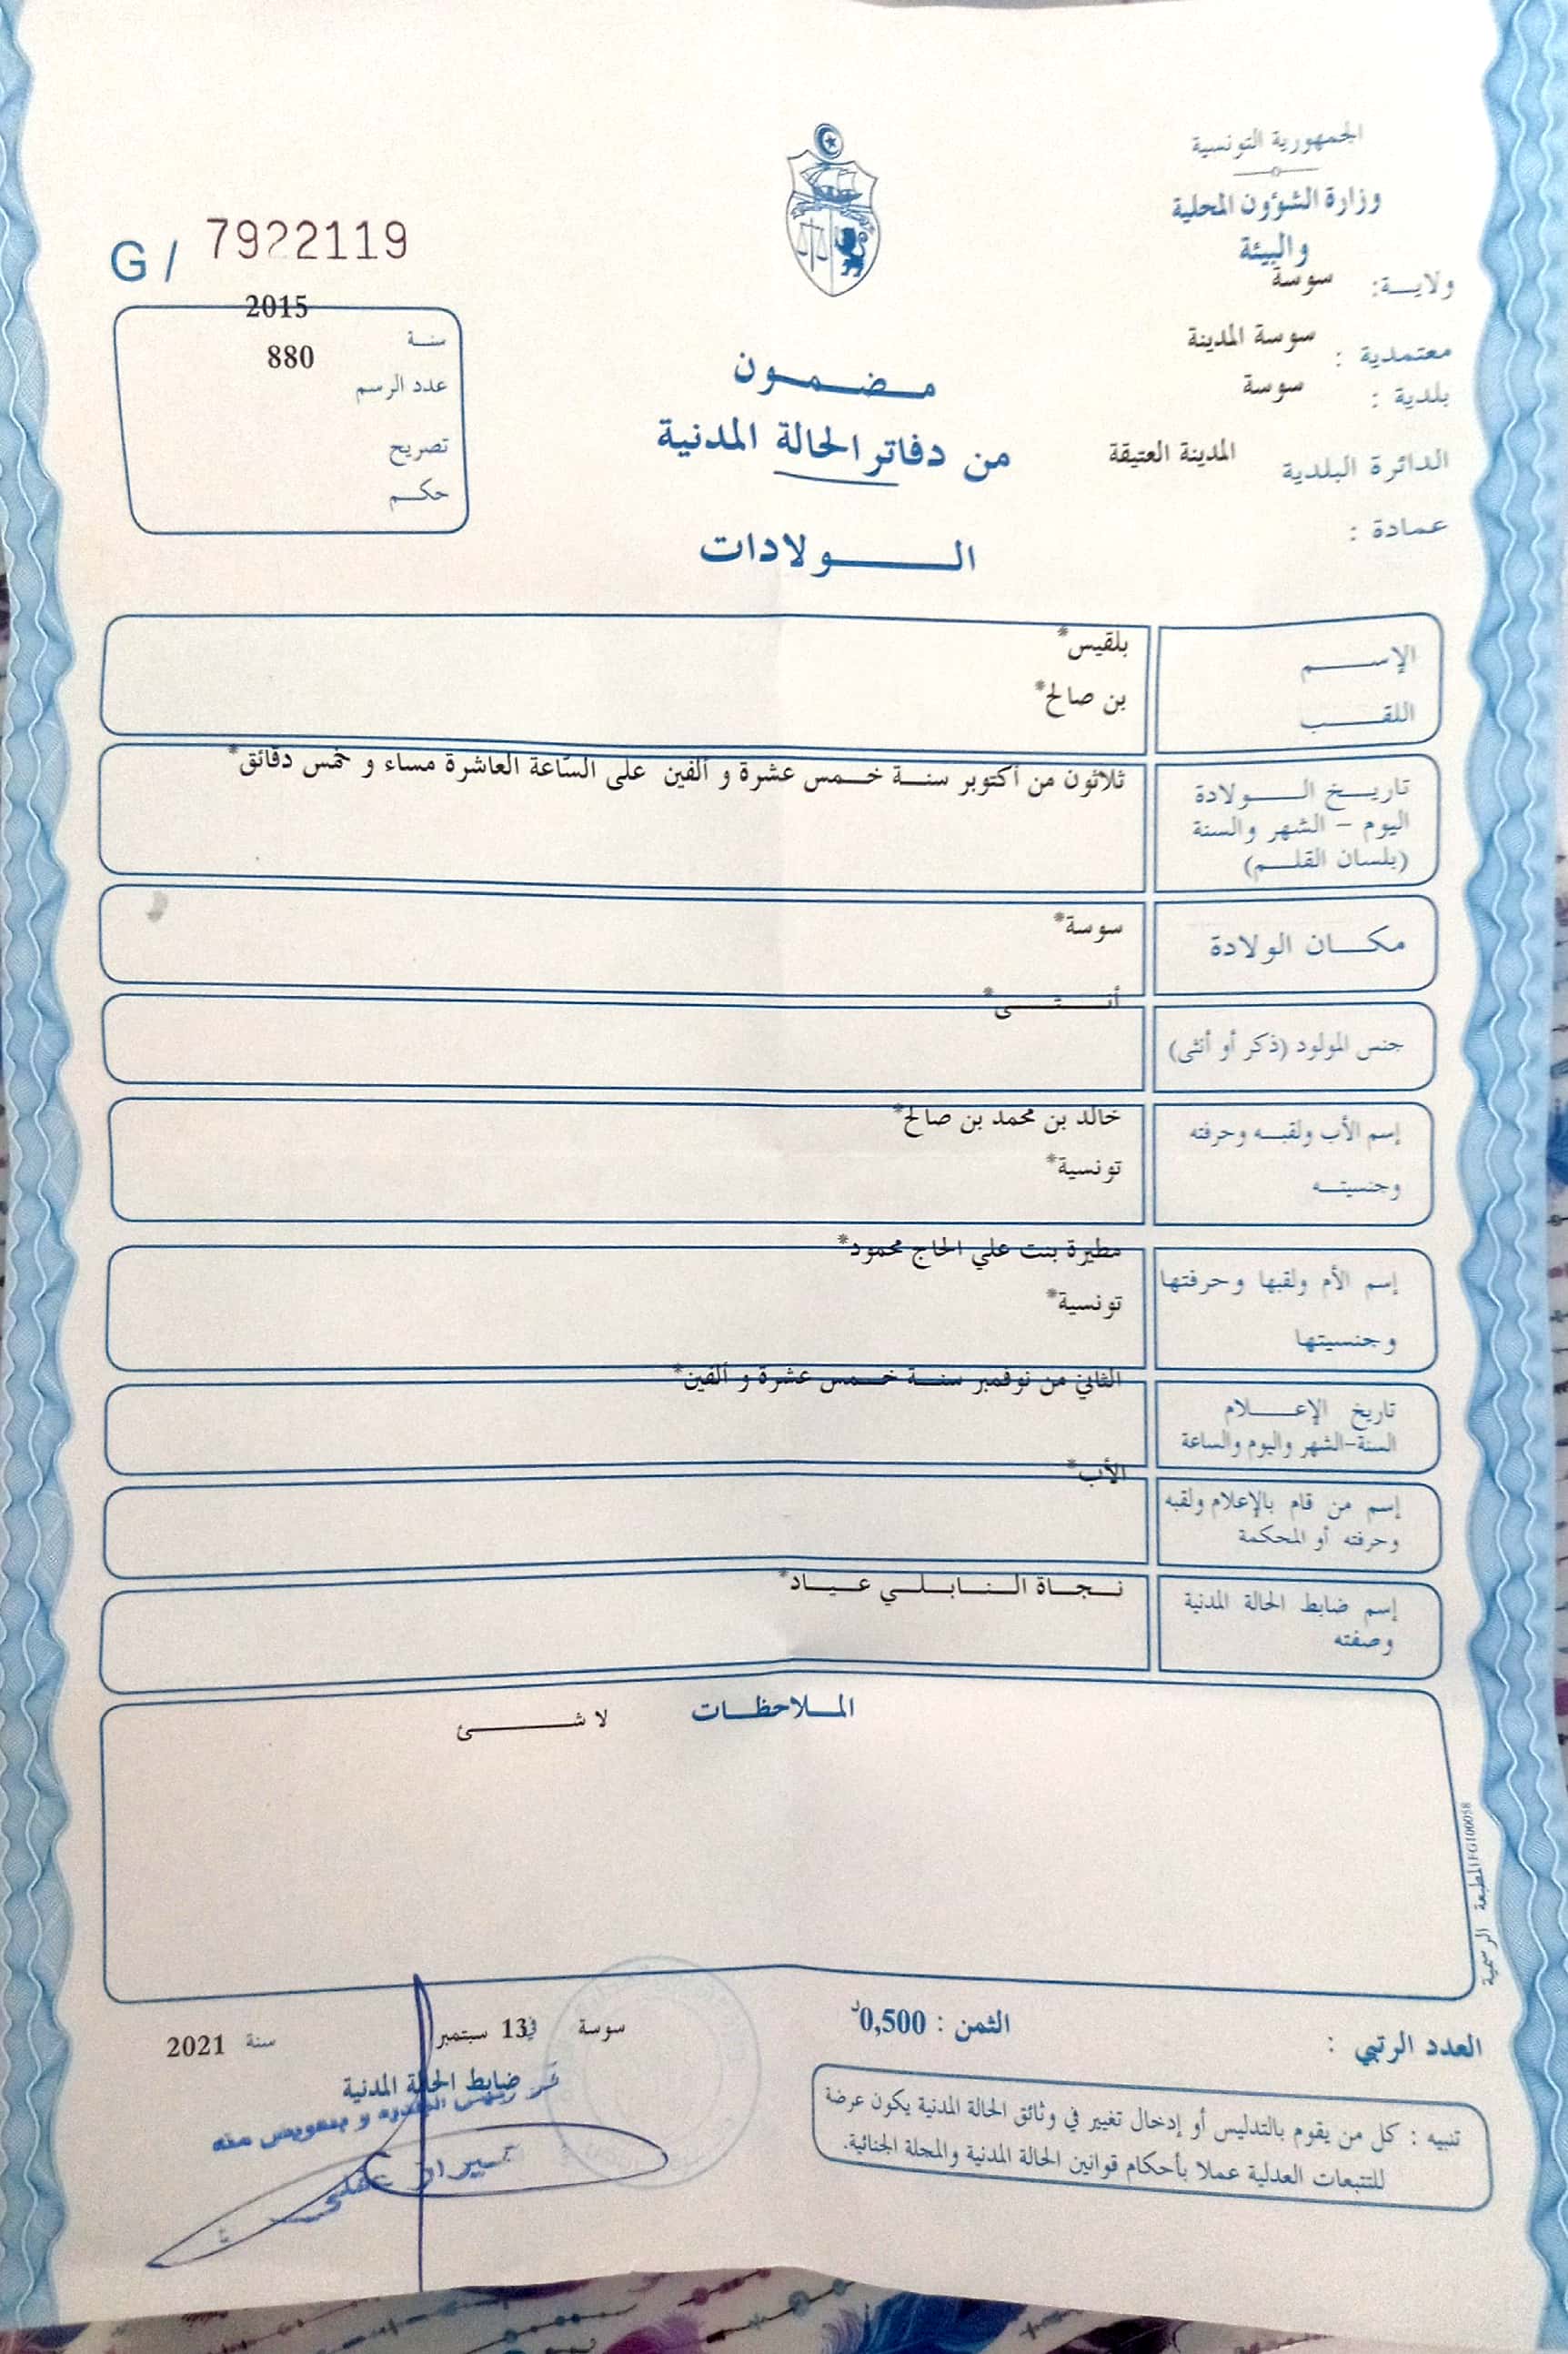 الجمهورية التونسية
وزارة الشؤون المحلية
والبيئة
ولايـة: سوسة
معتمدية : سوسة المدينة
بلدية : سوسة
الدائرة البلدية المدينة العتيقة
عمادة :
G / 7922119
سنة 2015
عدد الرسم 880
تصريح
حكم
مضمون
من دفاتر الحالة المدنية
الولادات
الإسم بلقيس*
اللقب بن صالح*
تاريخ الولادة ثلاثون من أكتوبر سنة خمس عشرة و ألفين على السّاعة العاشرة مساء و خمس دقائق*
اليوم – الشهر والسنة
(بلسان القلم)
مكان الولادة سوسة*
جنس المولود (ذكر أو أنثى) أنثى*
إسم الأب ولقبه وحرفته خالد بن محمد بن صالح*
وجنسيته تونسية*
إسم الأم ولقبها وحرفتها مطيرة بنت علي الحاج محمود*
وجنسيتها تونسية*
تاريخ الإعلام الثاني من نوفمبر سنة خمس عشرة و ألفين*
السنة-الشهر واليوم والساعة
إسم من قام بالإعلام ولقبه الأب*
وحرفته أو المحكمة
إسم ضابط الحالة المدنية نجاة النابلي عياد*
وصفته
الملاحظات
لا شئ
المطبعة الرسمية
العدد الرتبي :
الثمن : 0,500د
سوسة في 13 سبتمبر سنة 2021
ضابط الحالة المدنية
عن رئيس الدائرة و بتفويض منه
تنبيه : كل من يقوم بالتدليس أو إدخال تغيير في وثائق الحالة المدنية يكون عرضة
للتتبعات العدلية عملا بأحكام قوانين الحالة المدنية والمجلة الجنائية.